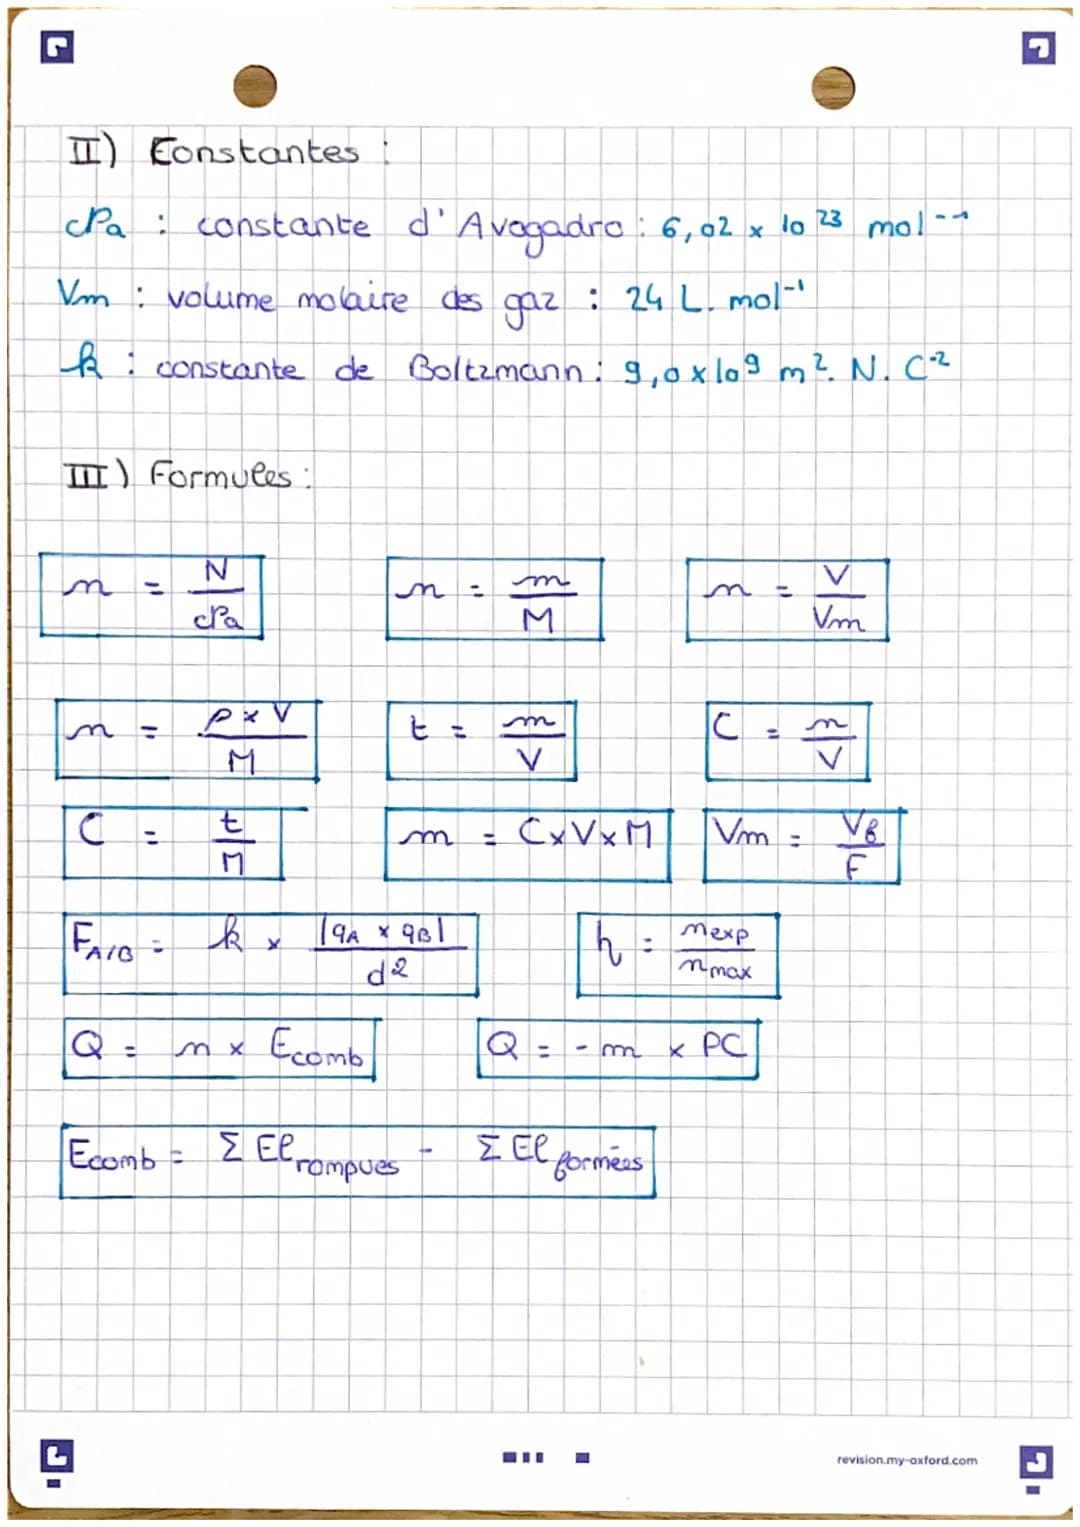 II) Constantes :
cPa : constante d'Avogadro : 6,02 x 10^23 mol^-1
Vm : volume molaire des gaz : 24 L. mol^-1
k : constante de Boltzmann : 9,0 x 10^9 m^2. N. C^-2
III) Formules :
n = N / cPa    n = m / M    n = V / Vm
n = ρ x V / M    t = m / V    C = n / V
C = t / M    m = C x V x M    Vm = Vf / F
F_A/B = k x |qA x qB| / d^2    h = n exp / n max
Q = n x Ecomb    Q = - m x PC
Ecomb = Σ El rompues - Σ El formées
revision.my-oxford.com